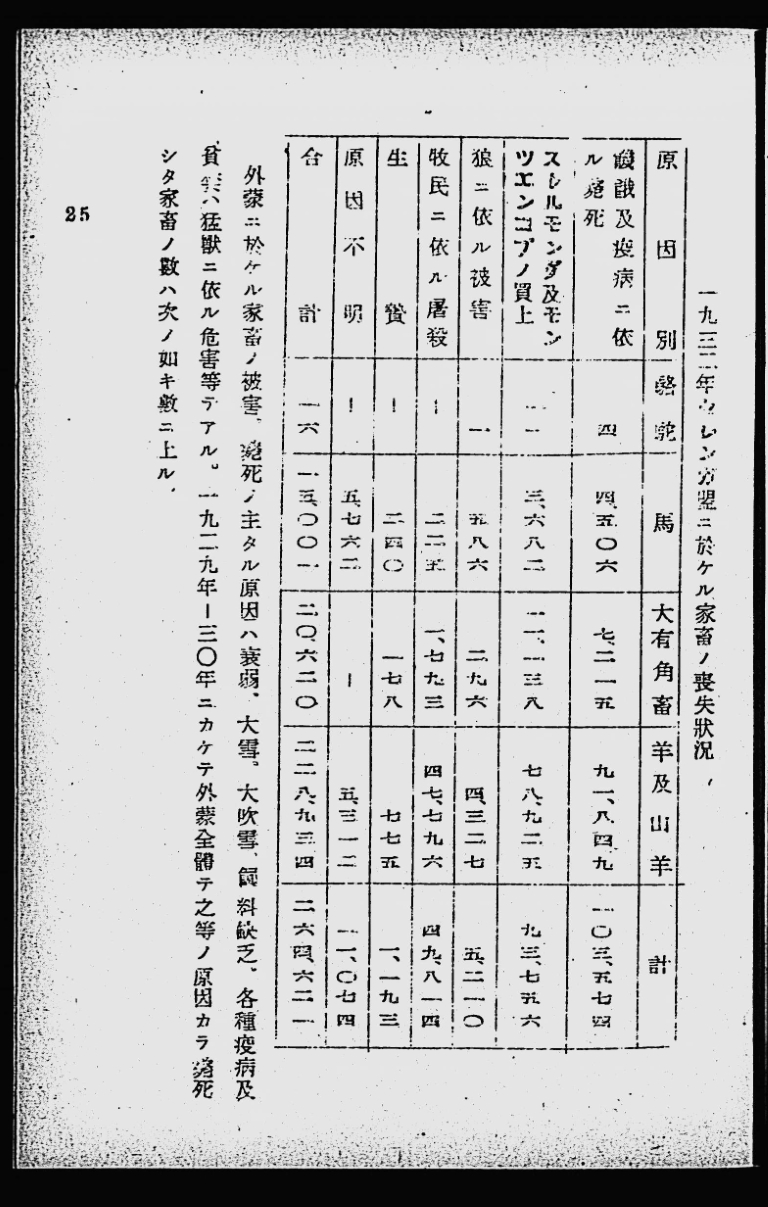 一九三二年ウレンガ盟ニ於ケル家畜ノ喪失狀況
原因別 駱駝 馬 大有角畜 羊及山羊 計
饑餓及疫病ニ依
ル斃死 四 四、五〇六 七、二一五 九一、八四九 一〇三、五七四
ストルモング及モン
ツエンコプノ買上 一一 三、六八二 一一、一三八 七八、九二五 九三、七五六
狼ニ依ル被害 一 五八六 二九六 四、三二七 五、二一〇
牧民ニ依ル屠殺 ー 二二五 一、七九三 四七、七九六 四九、八一四
生贄 ー 二四〇 一七八 七七五 一、一九三
原因不明 ー 五、七六二 ー 五、三一二 一一、〇七四
合計 一六 一五、〇〇一 二〇、六二〇 二二八、九三四 二六四、六二一
外蒙ニ於ケル家畜ノ被害、斃死ノ主タル原因ハ衰弱、大雪、大吹雪、飼料缺乏、各種疫病及
猛獸ニ依ル危害等デアル。一九二九年ー三〇年ニカケテ外蒙全體デ之等ノ原因カラ斃死
シタ家畜ノ數ハ次ノ如キ數ニ上ル、
25